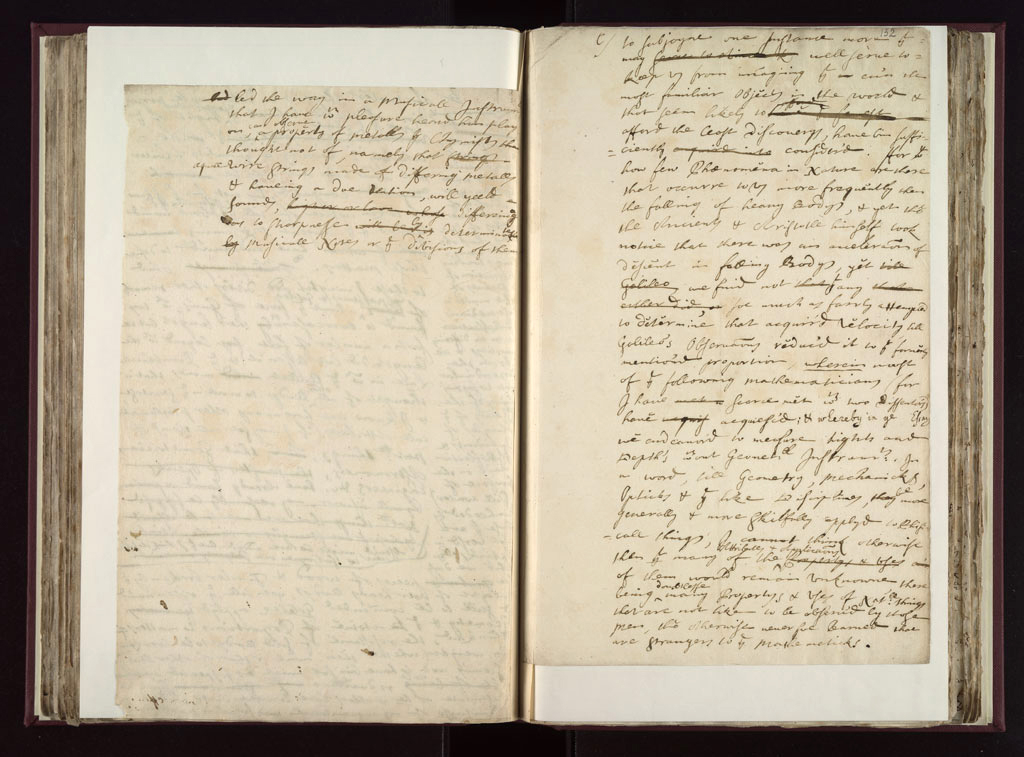 led the way in a Musicall Instrum
that I have wth pleasure heard him play
on, an observe a property of metalls yt Chymists
thought not of, namely that strings
wire strings made of differing metalls
& haveing a due tension, will yeeld
sounds, differing
as to sharpnesse determinate
Musicall Notes or ye divisions of them
132
C/ to subjoyne one Instance more yt
may well serve to
keep us from imagining yt in even the
most familiar Objects in the world &
that seem likely to
afford the least discoverys, have bin suffi-
ciently considerd. For tho
how few Phænomena in Nature are there
that occurre to us more frequently then
the falling of heavy Bodys, & yet tho
the Ancients & Aristotle himself took
notice that there was an acceleration of
descent in falling Bodys, yet till
Galileo, we find not that any
either did, so much as fairly attempted
to determine that acquird Velocity till
Galileos Observations reduc'd it to ye formerly
mentioned proportion, wherein most
of ye following mathematicians for
I have scarce met wth two dissenting
have acquiesc'd; & whereby in ye Essay
we endeavord to measure hights and
Depths wthout Geometrall Instrumts. In
a word, till Geometry, Mechanicks,
Opticks & ye like Disciplines, be more
Generally & more skilfully apply'd to Phisi-
call things, I cannot think otherwise
then yt many of the Attributes & Applications Propertys & Uses
of them would remain unknowne there
being doubtlesse many Propertys & Uses of Natll things
that are not like to be observd by those
men, tho otherwise never so learned that
are strangers to ye Mathematicks.